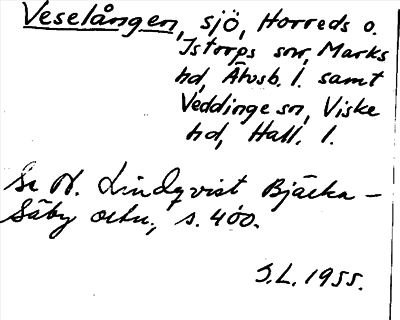 Veselången, sjö, Horreds o.
Istorps snr, Marks
hd, Älvsb. l. samt
Veddinge sn, Viske
hd, Hall. l.
Se N. Lindqvist Bjärka-
Säby ortn., s. 400.
S.L. 1955.